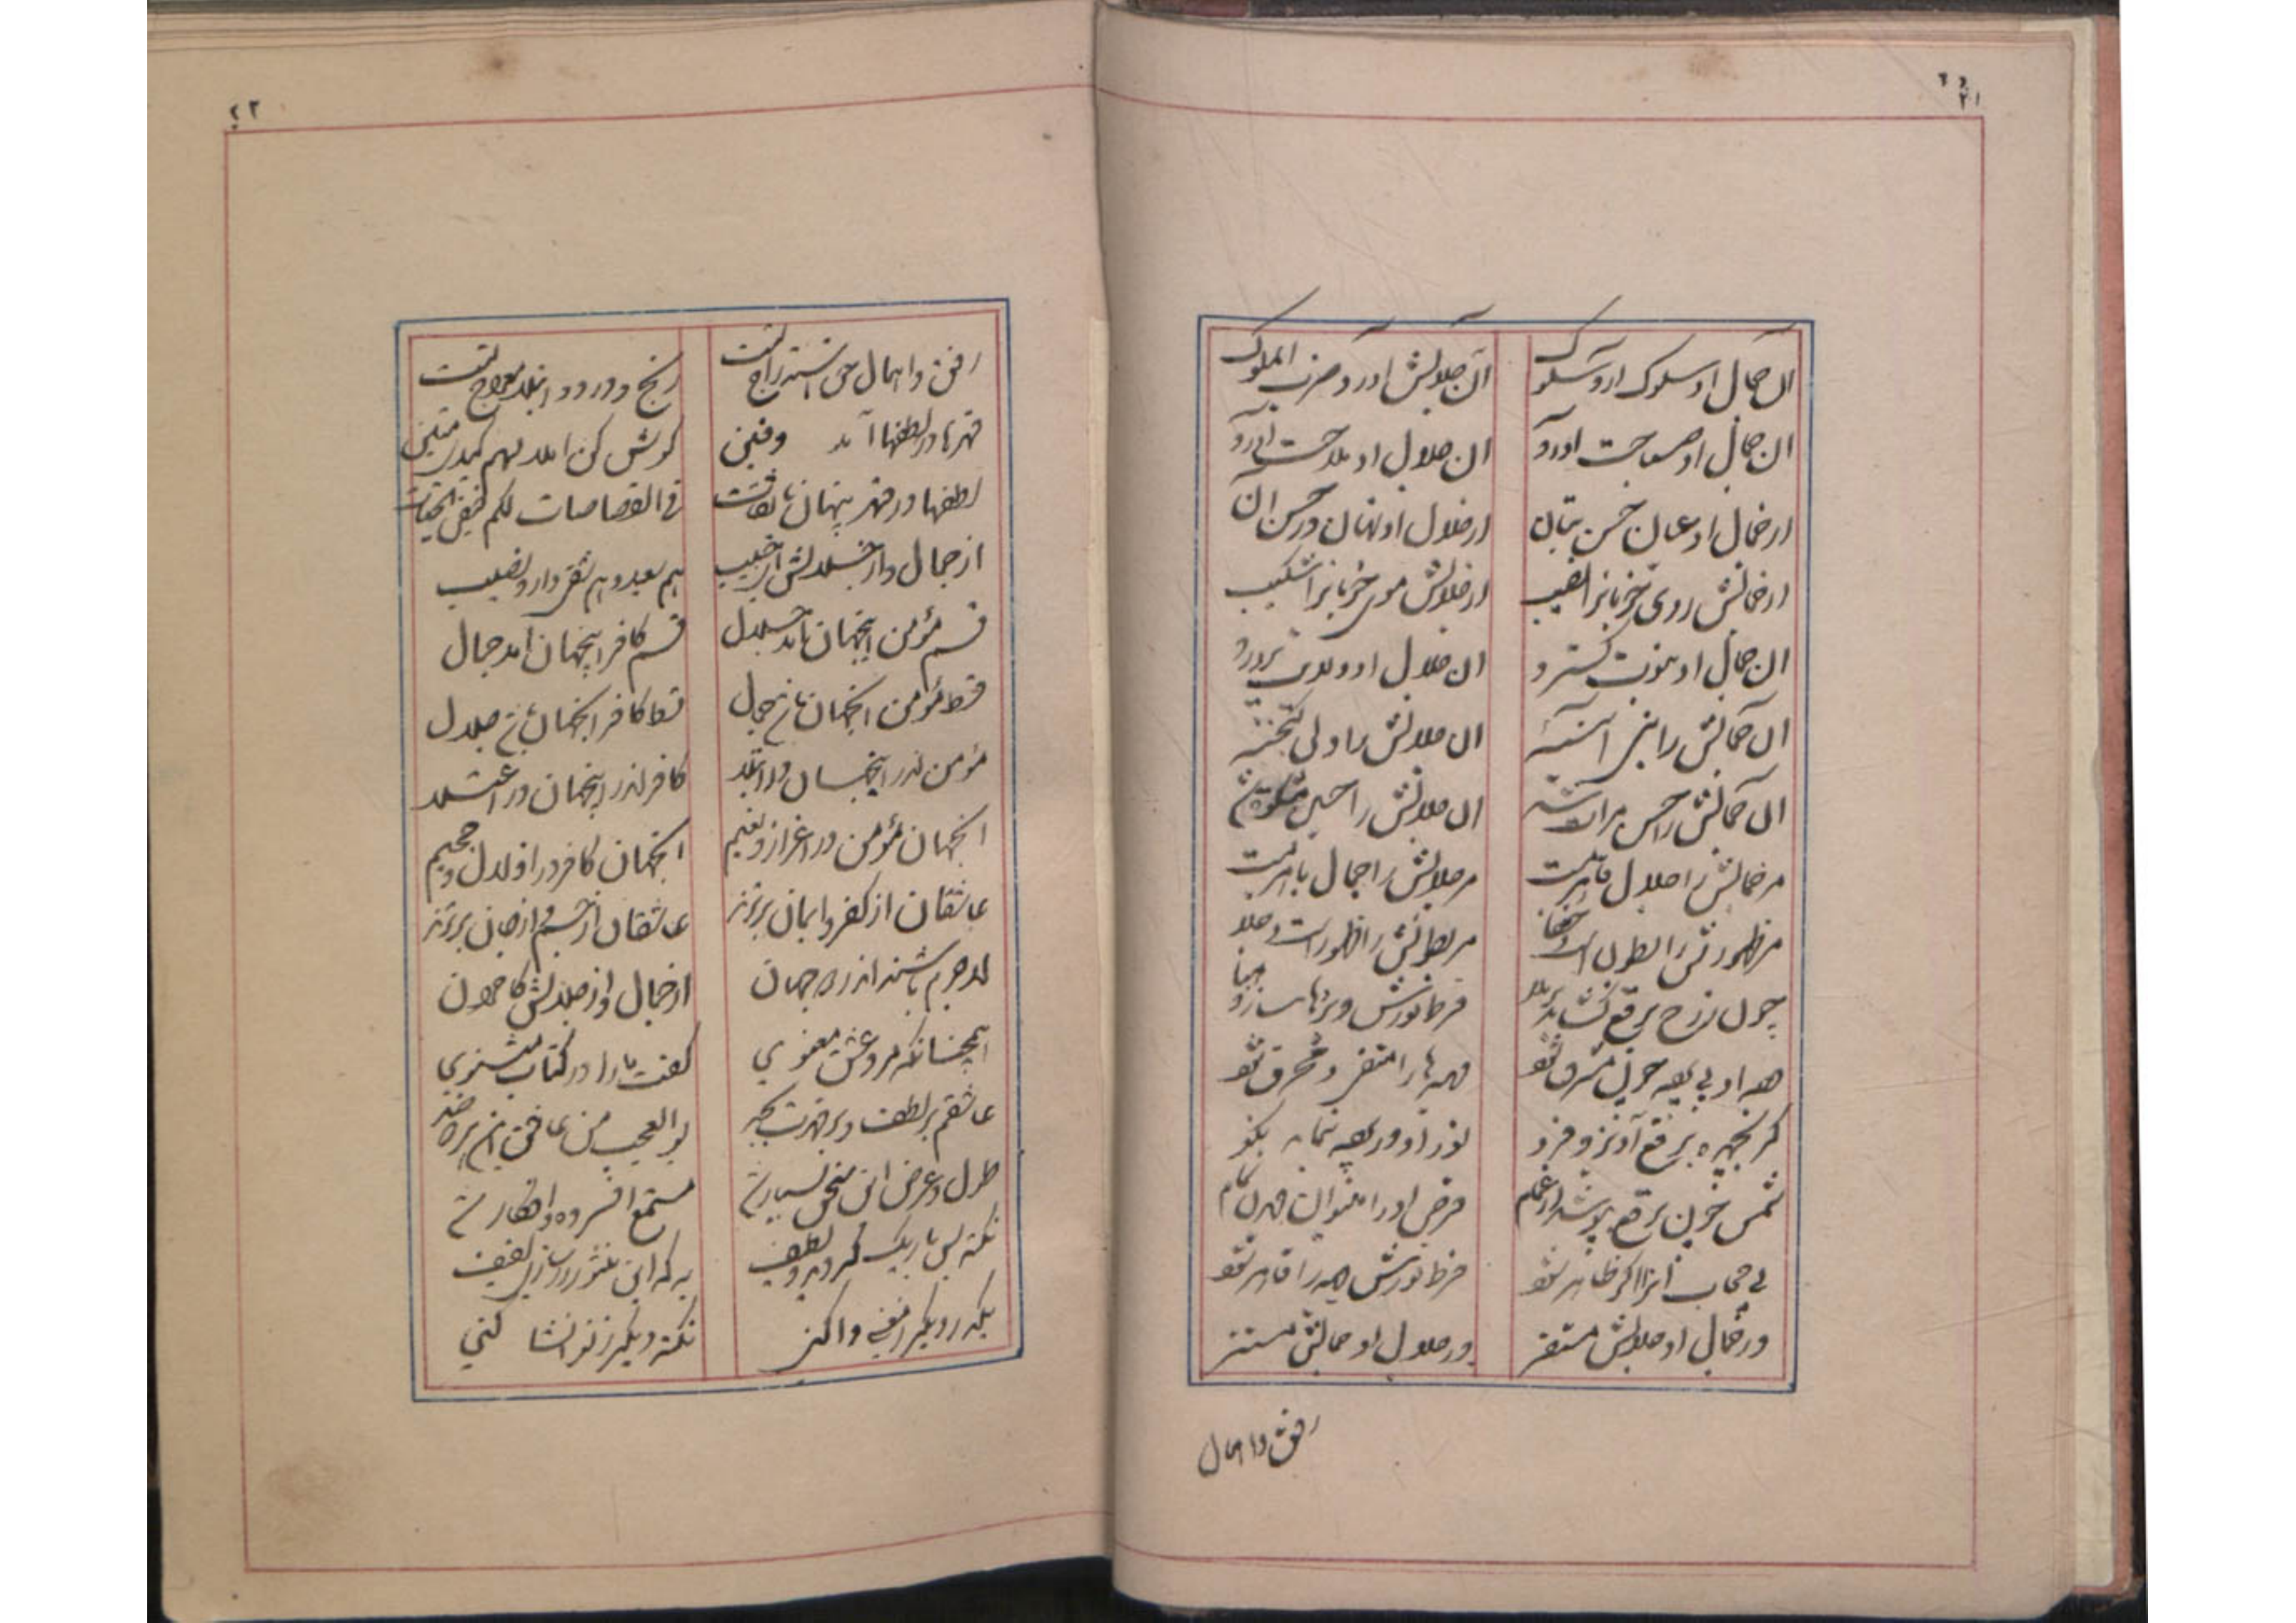 ۲۱
آن جمال او سلوک آرد سلوک
آن جلالش آورد ضرب الملوک
ان جمال او صباحت آورد
ان جلال او ملاحت آورد
از جمال او عیان حسن بتان
از جلال او نهان در حسن آن
از جمالش روی خوبانرا نصیب
از جلالش موی خوبانرا شکیب
ان جمال او نبوت گسترد
ان جلال او ولایت پرورد
آن جمالش را نبی آئینه
ان جلالش را ولی گنجینه
آن جمالش را حسن مرآت
ان جلالش را حسین مشکوة
مر جمالش را جلال قاهرست
مر جلالش را جمال باهرست
مر ظهورش را بطون است و خفا
مر بطونش را ظهور است و جلا
چون ز رخ برقع گشاید برملا
فرط نورش
همه او بی همه چون مشرق شود
همه ها را متفی و محرق شود
گر بچهره برقع آویزد فرو
نور او در همه نماید نکو
شمس چون برقع بپوشد از غمام
قرص او را میتوان دیدن تمام
بی حجاب آنرا اگر ظاهر شود
فرط نورش دیده را قاهر شود
در جمال او جلالش مستقر
در جلال او جمالش مستتر
رفق و امهال
۲۲
رفق و امهال حق استدراج تست
رنج و درد و ابتلا معراج تست
قهرها در لطفها آمد دفین
گوش کن املی لهم کیدی متین
لطفها در قهر پنهان با ثقات
فی القصاصات لکم مخفی الحیات
از جمال و از جلالش ای حبیب
هم سعید و هم شقی دارد نصیب
قسم مؤمن اینجهان باشد جلال
قسم کافر اینجهان آمد جمال
قسط مؤمن آنجهان باشد جمال
قسط کافر آنجهان باشد جلال
مؤمن اندر اینجهان در ابتلا
کافر اندر اینجهان در اعتلا
آنجهان مؤمن در اعزاز و نعیم
آنجهان کافر در اذلال و جحیم
عاشقان از کفر و ایمان برترند
عاشقان از جسم و از جان برترند
لاجرم باشند اندر دو جهان
از جمال و از جلالش کامران
همچنانکه مرد عشق معنوی
گفت ما را در کتاب مثنوی
عاشقم بر لطف و بر قهرت بجد
بوالعجب من عاشق این هر دو ضد
طول و عرض این سخن بسیار شد
مستمع افسرده و افکار شد
نکته بس باریک گردید و لطیف
به که این منثور را سازی لفیف
یکدر دیگر ز معنی وا کنی
نکته دیگر ز نو انشا کنی